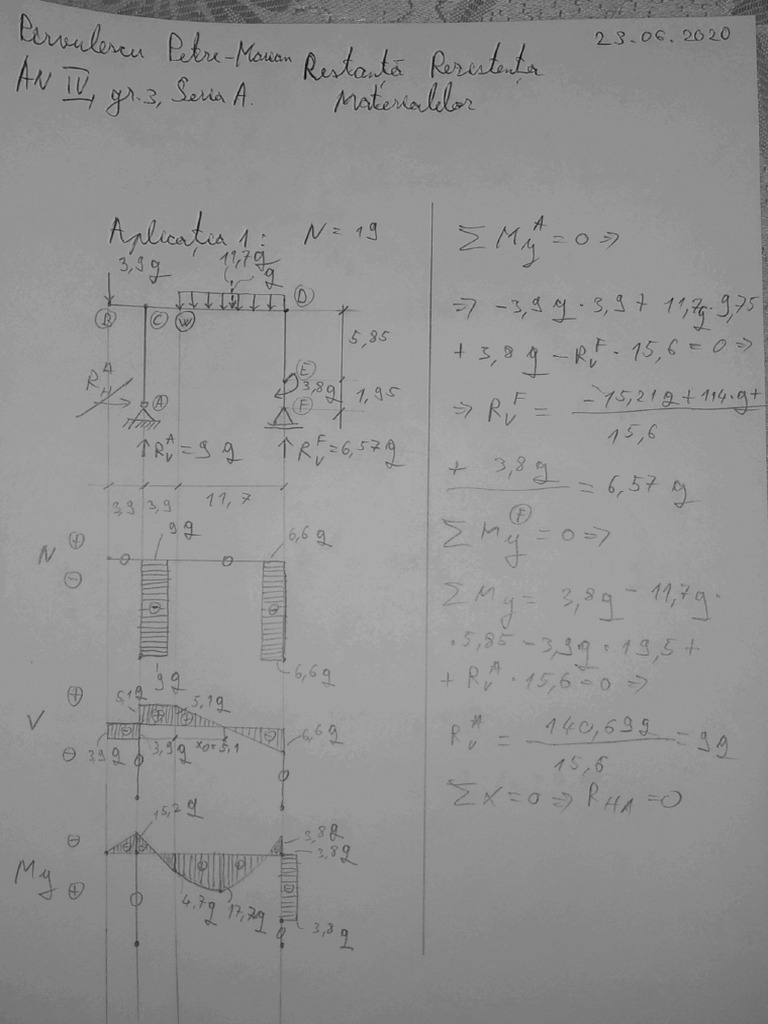 23.06.2020
Pervulescu Petre-Marian Restanță Rezistența
AN IV, gr.3, Seria A. Materialelor
Aplicația 1: N = 19
3,9g 11,7g
g
B C W D
5,85
E
3,8g
1,95
R_H^A
A
F
R_V^A = 9 g R_V^F = 6,57g
3,9 3,9 11,7
N
⊕
⊖
9g
6,6g
9g
6,6g
V
⊕
⊖
5,1g
5,1g
3,9g
3,9g
x0=5,1
6,6g
My
⊖
⊕
15,2g
3,8g
3,8g
4,7g
17,7g
3,8g
Σ My^A = 0 =>
=> -3,9 g · 3,9 + 11,7g · 9,75
+ 3,8 g - R_V^F · 15,6 = 0 =>
=> R_V^F = -15,21g + 114·g +
15,6
+ 3,8g = 6,57 g
Σ My^F = 0 =>
Σ My = 3,8g - 11,7g ·
· 5,85 - 3,9g · 19,5 +
+ R_V^A · 15,6 = 0 =>
R_V^A = 140,69g / 15,6 = 9g
Σ X = 0 => R_HA = 0